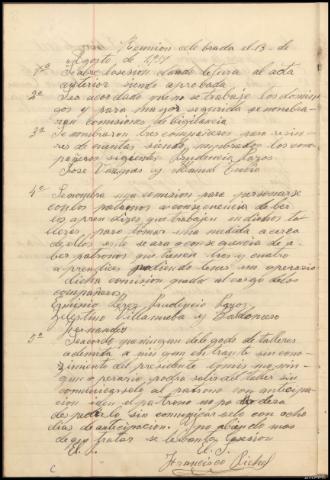 Reunion celebrada el 13 de
Agosto de 1927
1º Se abre la sesion dando letura al acta
anterior siendo aprobada
2º Sea acordado que no se trabaje los domin
gos y para mayor seguridad se nombra
ran comisiones de bigilancia
3º Se nombraron tres compañeros para reviso
res de cuentas siendo nombrados los com
pañeros siguientes Prudencio
Jose Vazquez y Manuel
4º Se nombra una comision para personarse
con los patronos a consequencia de ber
los aprendizes que trabajan en dichos ta
lleres para tomar una medida a cerca
de ellos esto se ara a consequencia de a
ber patronos que tienen tres y cuatro
aprendizes pudiendo tener un operario
dicha comision queda al cargo de los
compañeros
Erminio Lopez Prudencio
Zelestino Villanueba y Baldomero
Hernandez
5º Se acordo que ningun delegado de talleres
admita a ningun entrante sin cono
zimiento del presidente tam
gun operario podra salir del taller sin
comunicarselo al patrono con anticipa
cion iden el patrono no po dra
despedirlo sin comunicarselo con ocho
dias de anticipacion. Y no abiendo mas
de que tratar se lebanta la sesion
Francisco